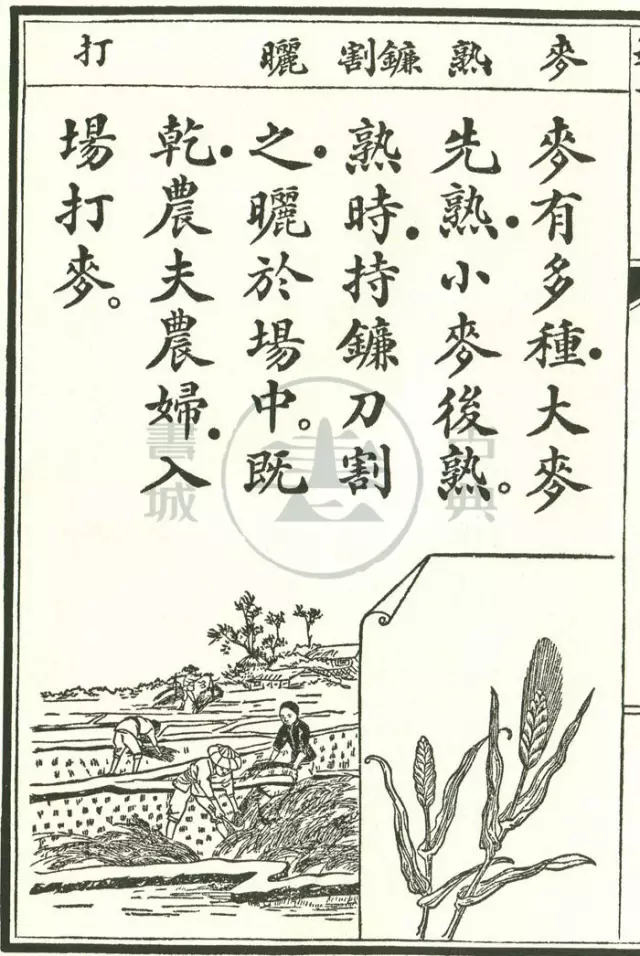 麥 熟 鐮割 曬 打
麥有多種．大麥
先熟．小麥後熟。
熟時．持鐮刀割
之．曬於場中。既
乾．農夫農婦．入
場打麥。
古典
書城